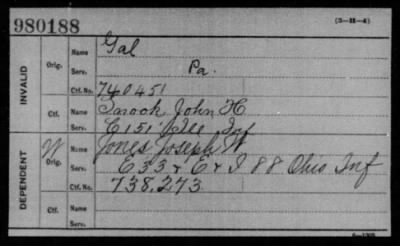 980188
(3-H-4)
INVALID
Orig.
Name Gal
Serv. Pa.
Ctf. No. 740451
Ctf.
Name Snook John H
Serv. E 151 Ill Inf
DEPENDENT
W
Orig.
Name Jones Joseph W
Serv. E 33 & E & I 88 Ohio Inf
Ctf. No. 738,273
Ctf.
Name
Serv.